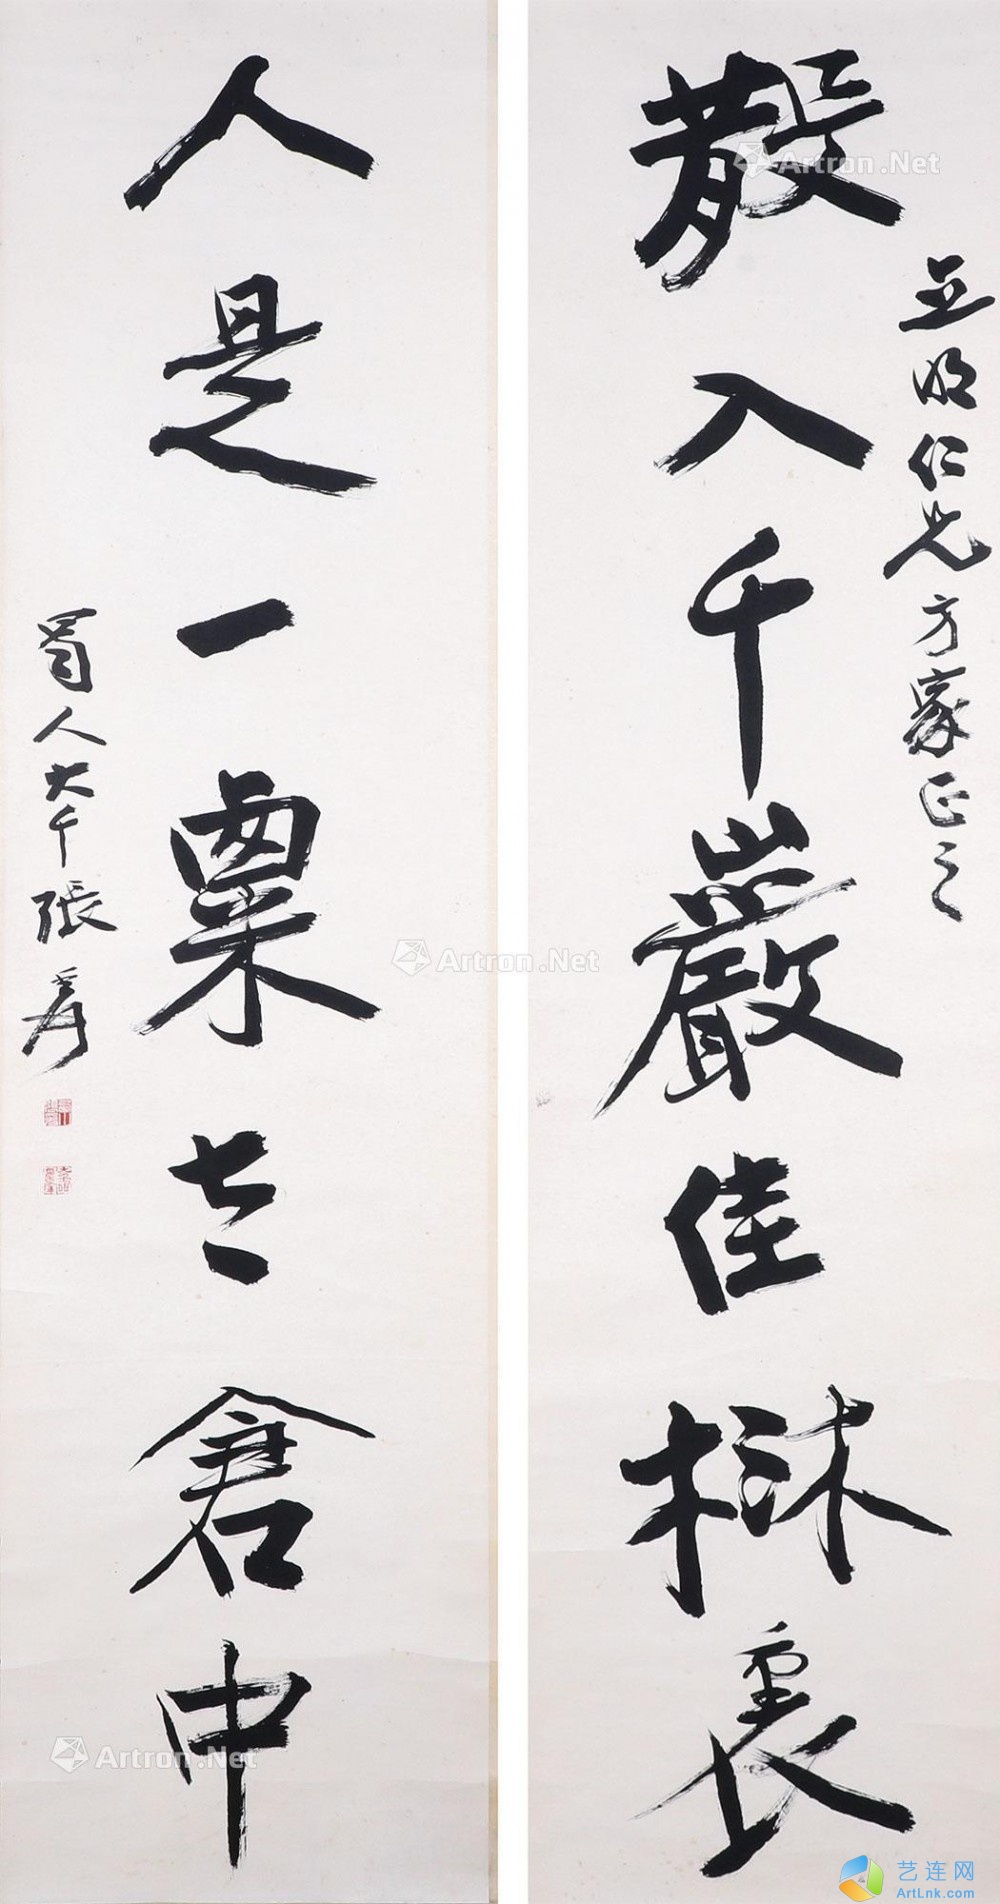 散入千巖佳樹裏
立明仁兄方家正之
人是一粟太倉中
蜀人大千張爰
Artron.Net
Artron.Net
Artron.Net
艺连网
ArtLnk.com